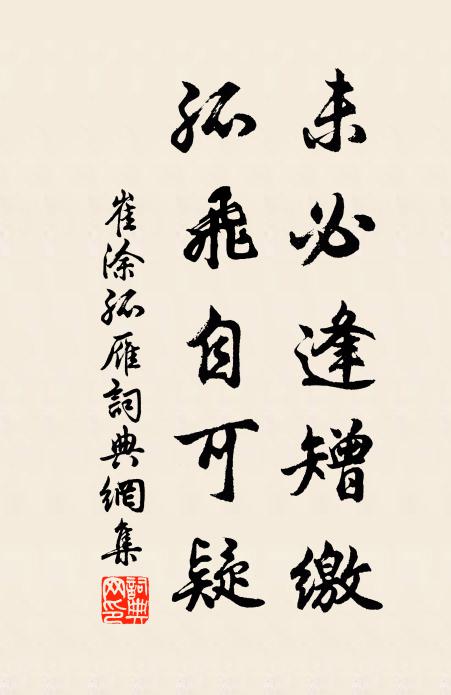 未必逢矰繳
孤飛自可疑
崔涂孤雁詞典網集
詞典网印